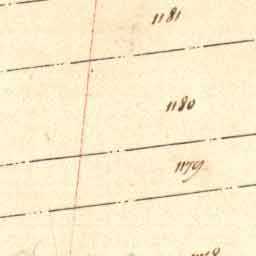 1181
1180
1179